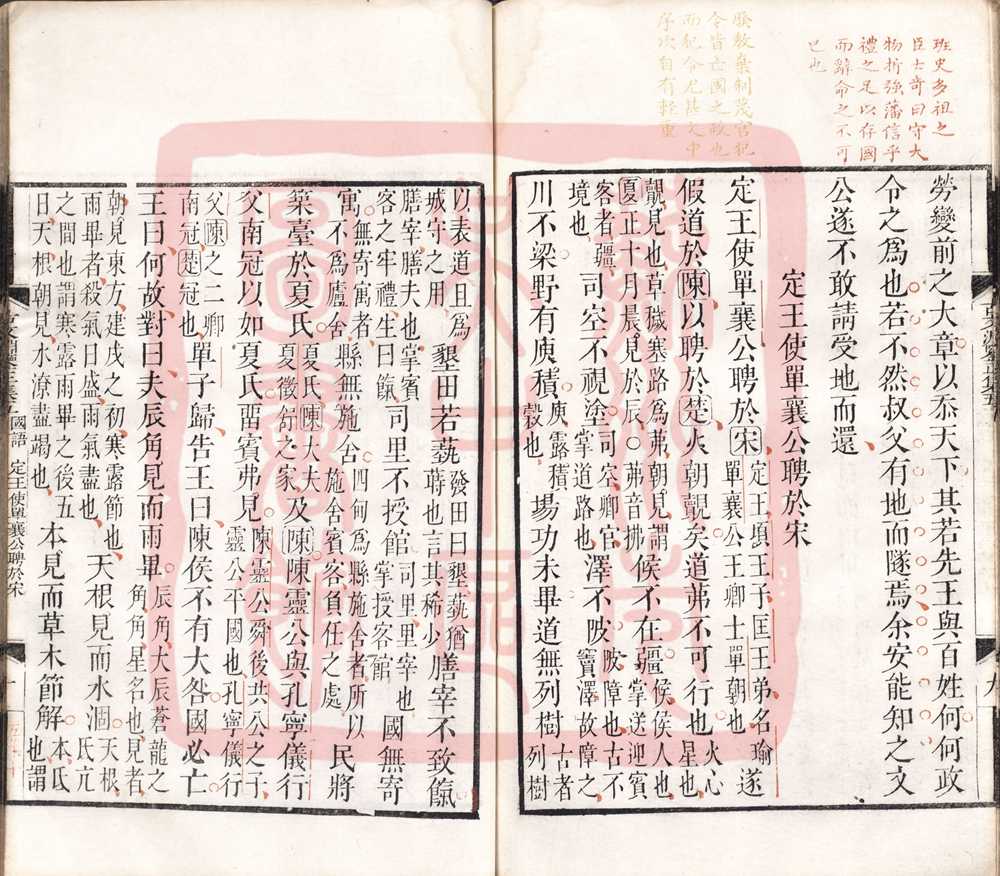 班史多祖之
臣士奇曰守大
物折強藩信乎
禮之足以存國
而辭命之不可
已也
廢教棄制蔑官犯
令皆亡國之故也
而犯令尤甚文中
序次自有輕重
勞變前之大章以忝天下其若先王與百姓何何政
令之爲也若不然叔父有地而隧焉余安能知之文
公遂不敢請受地而還
定王使單襄公聘於宋
定王使單襄公聘於宋定王頃王子匡王弟名瑜單襄公王卿士單朝也遂
假道於陳以聘於楚火朝覿矣道茀不可行也火心星也
覿見也草穢塞路爲茀朝見謂夏正十月晨見於辰○茀音拂候不在疆候候人也掌送迎賓
客者疆境也司空不視塗司空卿官掌道路也澤不陂陂障也古不竇澤故障之
川不梁野有庾積庾露積穀也場功未畢道無列樹古者列樹
以表道且爲城守之用墾田若蓺發田曰墾蓺猶蒔也言其稀少膳宰不致餼
膳宰膳夫也掌賓客之牢禮生曰餼司里不授館司里里宰也掌授客館國無寄
寓無寄寓者不爲廬舍縣無施舍四甸爲縣施舍者所以施舍賓客負任之處民將
築臺於夏氏夏氏陳大夫夏徵舒之家及陳陳靈公與孔寧儀行
父南冠以如夏氏畱賓弗見陳靈公舜後共公之子靈公平國也孔寧儀行
父陳之二卿南冠楚冠也單子歸告王曰陳侯不有大咎國必亡
王曰何故對曰夫辰角見而雨畢辰角大辰蒼龍之角角星名也見者
朝見東方建戌之初寒露節也雨畢者殺氣日盛雨氣盡也天根見而水涸天根氐亢
之間也謂寒露雨畢之後五日天根朝見水潦盡竭也本見而草木節解本氐也謂
國語 定王使單襄公聘於宋
九